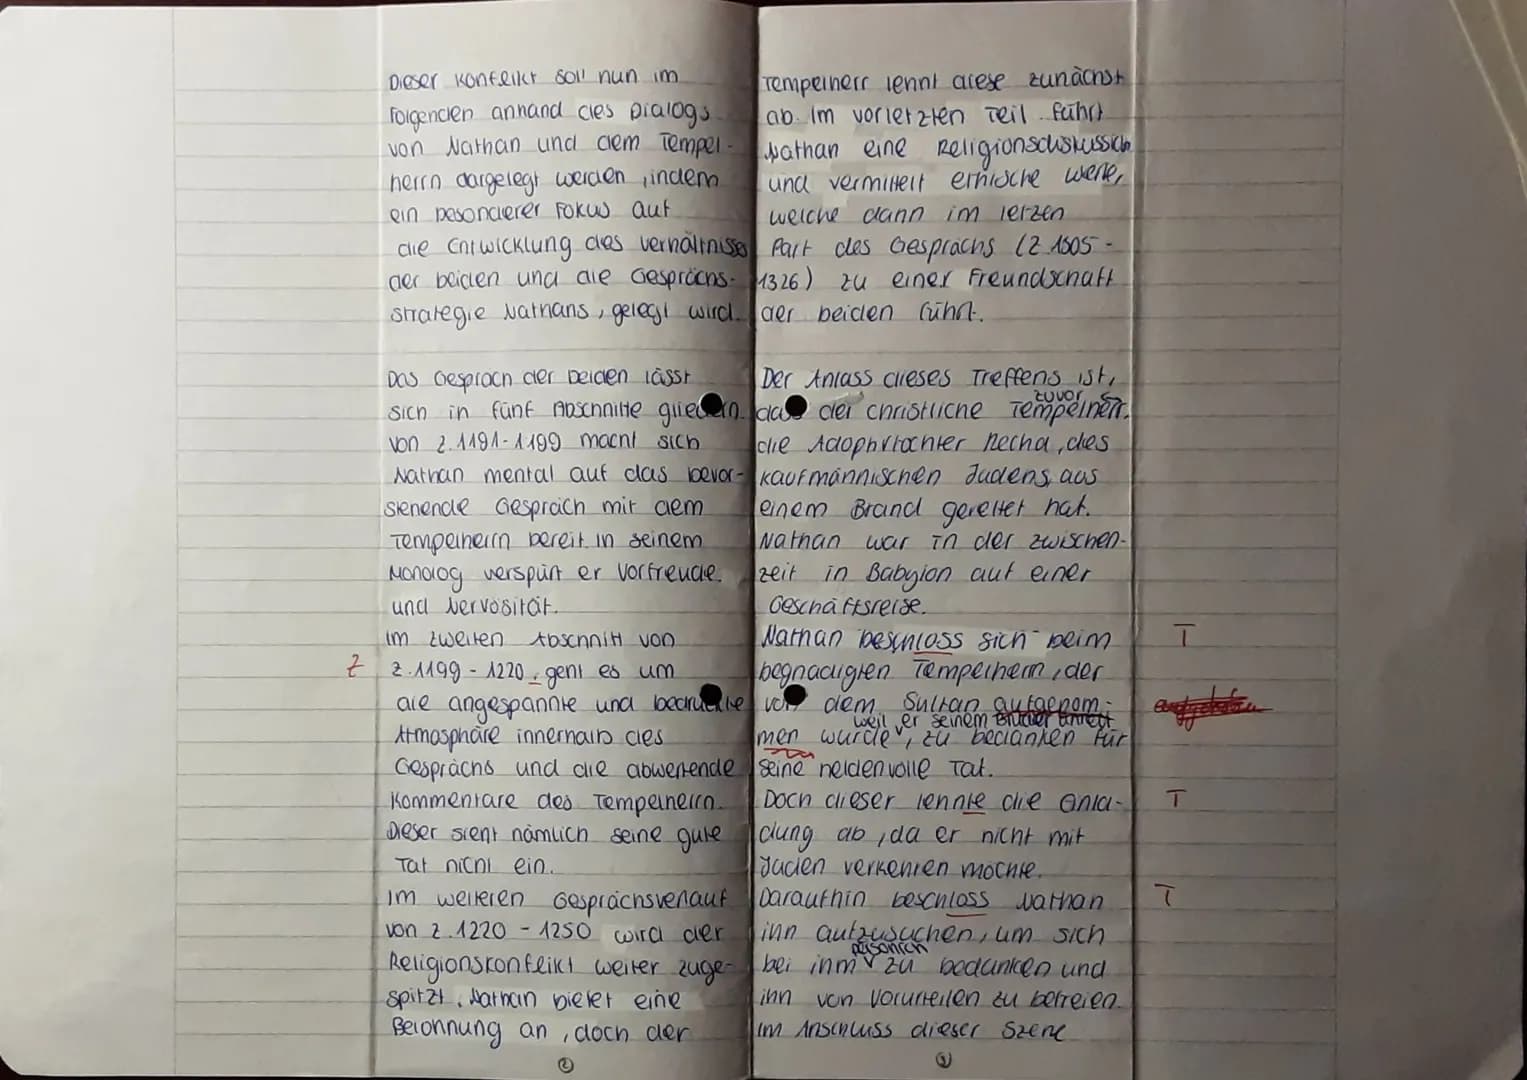 Dieser Konflikt soll nun im
Folgenden anhand des Dialogs
von Nathan und dem Tempel-
herrn dargelegt werden, indem
ein besonderer Fokus auf
die Entwicklung des Verhältnisses
der beiden und die Gesprächs-
strategie Nathans, gelegt wird.
Das Gespräch der beiden lässt
sich in fünf Abschnitte gliedern.
Von Z.1191-1199 macht sich
Nathan mental auf das bevor-
stehende Gespräch mit dem
Tempelherrn bereit. In seinem
Monolog verspürt er Vorfreude
und Nervösität.
Im zweiten Abschnitt von
Z
Z.1199 - 1220, geht es um
die angespannte und bedrückte
Atmosphäre innerhalb des
Gesprächs und die abwertende
Kommentare des Tempelherrn.
Dieser sieht nämlich seine gute
Tat nicht ein.
Im weiteren Gesprächsverlauf
von Z.1220 - 1250 wird der
Religionskonflikt weiter zuge-
spitzt. Nathan bietet eine
Belohnung an, doch der
2
Tempelherr lehnt diese zunächst
ab. Im vorletzten Teil führt
Nathan eine Religionsdiskussion
und vermittelt ethische Werte,
welche dann im letzen
Part des Gesprächs (Z.1305-
1326) zu einer Freundschaft
der beiden führt.
Der Anlass dieses Treffens ist,
zuvor
dass der christliche Tempelherr
die Adoptivtochter Recha, des
kaufmännischen Judens, aus
einem Brand gerettet hat.
Nathan war in der Zwischen-
zeit in Babylon auf einer
Geschäftsreise.
Nathan beschloss sich beim
T
begnadigten Tempelherrn, der
von dem Sultan aufgenom-
weil er seinem Bruder ähnelt
men wurde, zu bedanken für
seine heldenvolle Tat.
Doch dieser lehnte die Einla-
T
dung ab, da er nicht mit
Juden verkehren möchte.
Daraufhin beschloss Nathan
T
ihn aufzusuchen, um sich
persönlich
bei ihm zu bedanken und
ihn von Vorurteilen zu befreien.
Im Anschluss dieser Szene
3